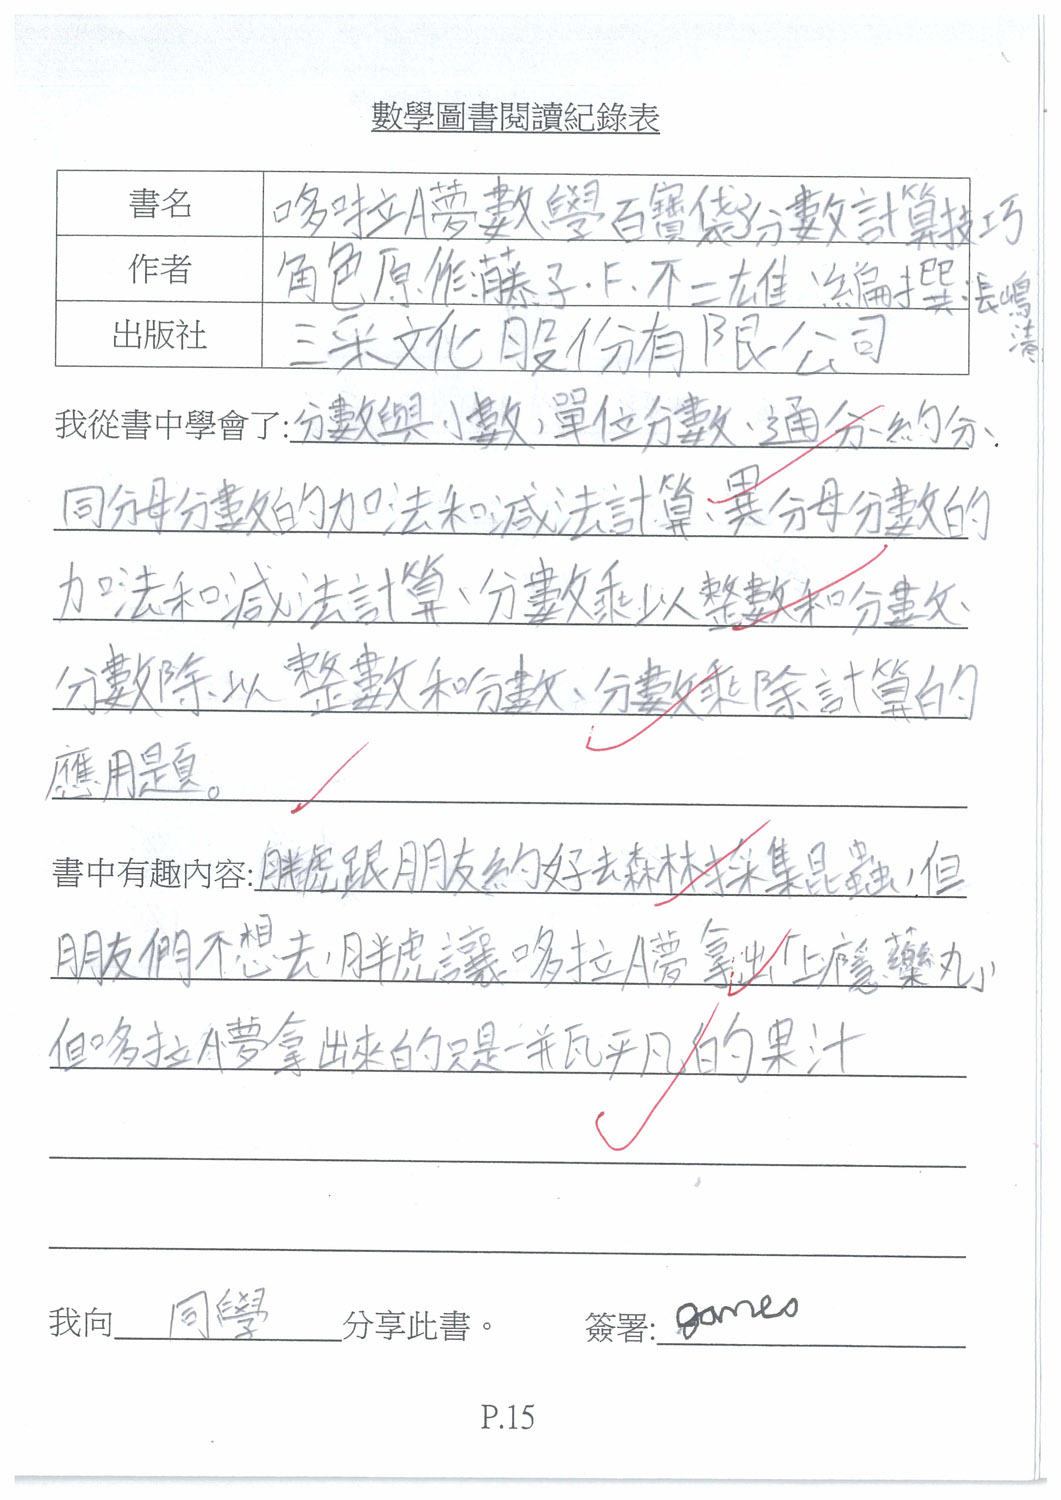 數學圖書閱讀紀錄表
書名 哆啦A夢數學百寶袋分數計算技巧
作者 角色原作:藤子·F·不二雄 編撰:張嶋漬
出版社 三采文化股份有限公司
我從書中學會了:分數與小數、單位分數、通分、約分、
同分母分數的加法和減法計算、異分母分數的
加法和減法計算、分數乘以整數和分數、
分數除以整數和分數、分數乘除計算的
應用題。
書中有趣內容:胖虎跟朋友約好去森林採集昆蟲,但
朋友們不想去,胖虎讓哆拉A夢拿出「上癮藥丸」
但哆拉A夢拿出來的只是一瓶平凡的果汁
我向同學分享此書。 簽署:games
P.15